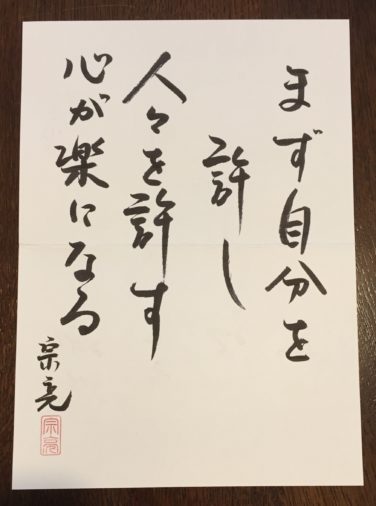 まず自分を
許し
人々を許す
心が楽になる
宗亮
宗亮